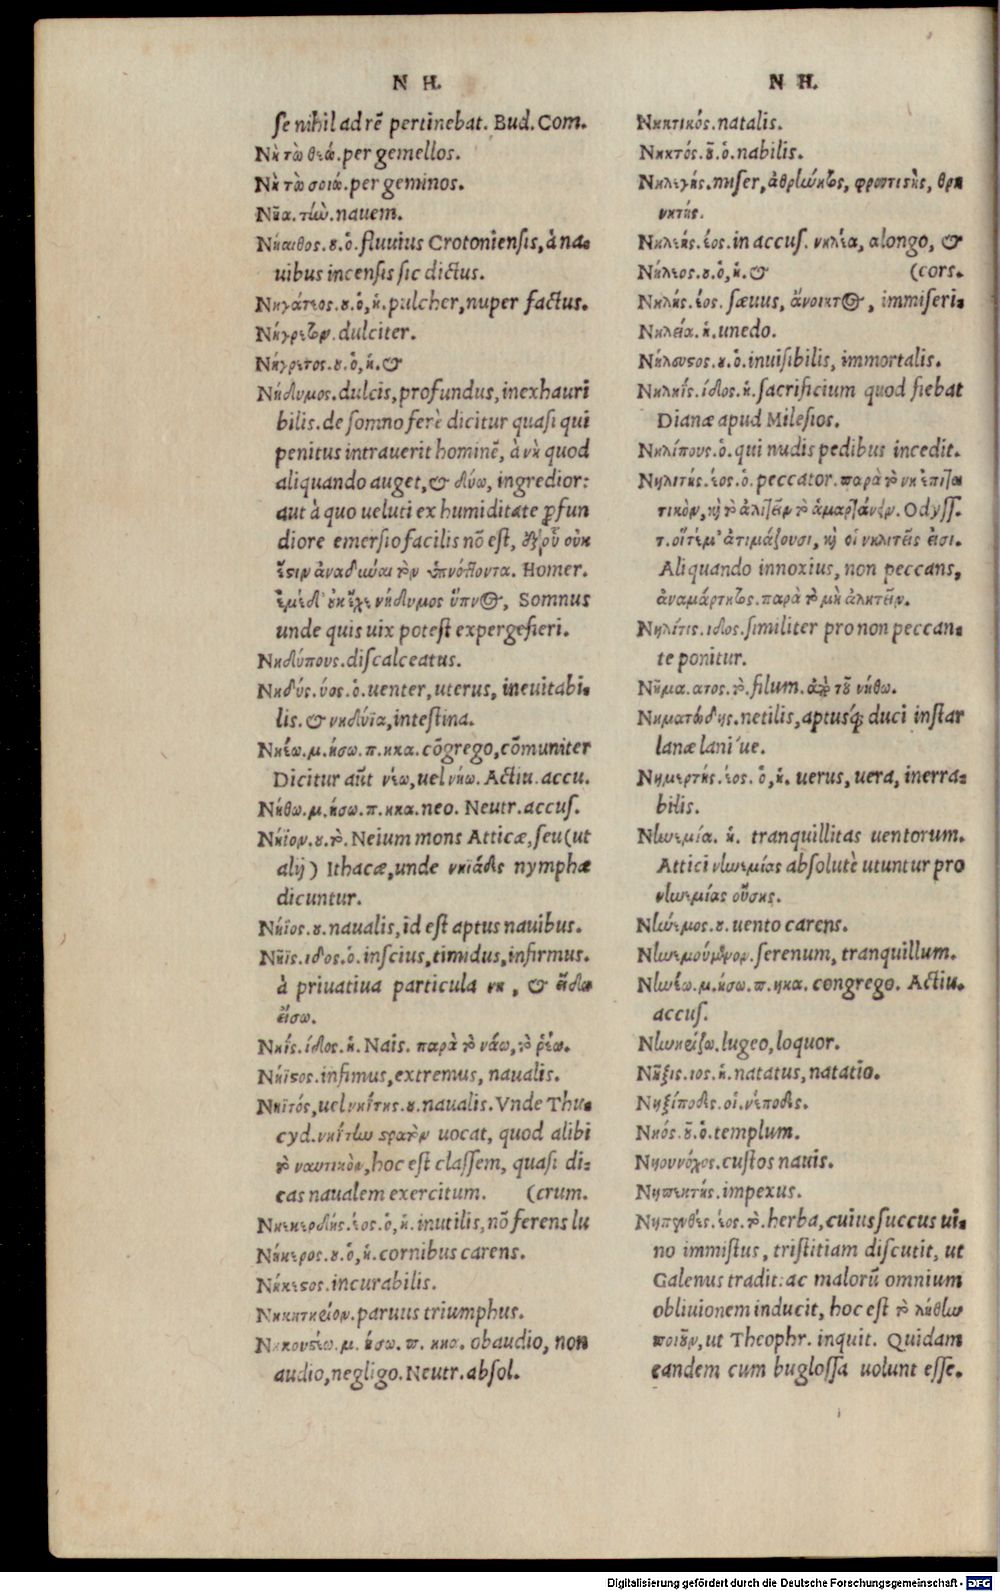 N H.
se nihil ad rē pertinebat. Bud. Com.
Νὴ τὼ θεώ. per gemellos.
Νὴ τὼ σοιώ. per geminos.
Νῆα. τὴν. nauem.
Νήαιθος. ου. ὁ. fluuius Crotoniensis, à na-
uibus incensis sic dictus.
Νηγάτεος. ου. ὁ, ἡ. pulcher, nuper factus.
Νήγρετον. dulciter.
Νήγρετος. ου. ὁ, ἡ. &
Νήδυμος. dulcis, profundus, inexhauri
bilis. de somno ferè dicitur quasi qui
penitus intrauerit hominē, à νη quod
aliquando auget, & δύω, ingredior:
aut à quo ueluti ex humiditate ꝓfun
diore emersio facilis nō est, ἐξ οὗ οὐκ
ἔστιν ἀναδῦναι τὸν ὑπνόοντα. Homer.
ἐμὲ δ' οὐκ ἔχε νήδυμος ὕπνος, Somnus
unde quis uix potest expergefieri.
Νηδύπους. discalceatus.
Νηδύς. ύος. ὁ. uenter, uterus, ineuitabi-
lis. & νηδύϊα, intestina.
Νηέω. μ. ήσω. π. ηκα. cōgrego, cōmuniter
Dicitur aūt νέω, uel νήω. Actiu. accu.
Νήθω. μ. ήσω. π. ηκα. neo. Neutr. accus.
Νήϊον. ου. τὸ. Neium mons Atticæ, seu (ut
alij) Ithacæ, unde νηϊάδες nymphæ
dicuntur.
Νήϊος. ου. naualis, id est aptus nauibus.
Νῆϊς. ιδος. ὁ. inscius, timidus, infirmus.
à priuatiua particula νη, & εἴδω
εἴσω.
Νηΐς. ίδος. ἡ. Nais. παρὰ τὸ νάω, τὸ ῥέω.
Νήϊστος. infimus, extremus, naualis.
Νηϊτός, uel νηΐτης. ου. naualis. Vnde Thu-
cyd. νηΐτην στρατὸν uocat, quod alibi
τὸ ναυτικὸν, hoc est classem, quasi di-
cas naualem exercitum. (crum.
Νηκερδής. έος. ὁ, ἡ. inutilis, nō ferens lu
Νήκερος. ου. ὁ, ἡ. cornibus carens.
Νήκεστος. incurabilis.
Νηκητήριον. paruus triumphus.
Νηκουστέω. μ. ήσω. π. ηκα. obaudio, non
audio, negligo. Neutr. absol.
N H.
Νηκτικός. natalis.
Νηκτός. οῦ. ὁ. nabilis.
Νηλεγής. miser, ἀθρήνητος, φροντιστὴς, θρη
νητής.
Νηλεής. έος. in accus. νηλέα, a longo, &
Νήλεος. ου. ὁ, ἡ. & (cors.
Νηλής. έος. sæuus, ἄνοικτος, immiseri-
Νηλεία. ἡ. unedo.
Νήλευσος. ου. ὁ. inuisibilis, immortalis.
Νηληΐς. ίδος. ἡ. sacrificium quod fiebat
Dianæ apud Milesios.
Νηλίπους. ὁ. qui nudis pedibus incedit.
Νηλιτής. έος. ὁ. peccator. παρὰ τὸ νη ἐπιτα
τικὸν, καὶ τὸ ἀλιτεῖν τὸ ἁμαρτάνειν. Odyss.
τ. οἵ τέ μ' ἀτιμάζουσι, καὶ οἳ νηλιτεῖς εἰσι.
Aliquando innoxius, non peccans,
ἀναμάρτητος. παρὰ τὸ μὴ ἀλητεῖν.
Νηλίτις. ιδος. similiter pro non peccan-
te ponitur.
Νῆμα. ατος. τὸ. filum. ἀπὸ τοῦ νήθω.
Νηματώδης. netilis, aptusq; duci instar
lanæ lani ue.
Νημερτής. έος. ὁ, ἡ. uerus, uera, inerra-
bilis.
Νηνεμία. ἡ. tranquillitas uentorum.
Attici νηνεμίας absolutè utuntur pro
νηνεμίας οὔσης.
Νηνέμος. ου. uento carens.
Νηνεμούμενον. serenum, tranquillum.
Νηνέω. μ. ήσω. π. ηκα. congrego. Actiu.
accus.
Νηνηείζω. lugeo, loquor.
Νῆξις. ιος. ἡ. natatus, natatio.
Νηξίποδες. οἱ. νέποδες.
Νηός. οῦ. ὁ. templum.
Νηουνόχος. custos nauis.
Νηπεκτής. impexus.
Νηπενθές. έος. τὸ. herba, cuius succus ui-
no immistus, tristitiam discutit, ut
Galenus tradit: ac malorū omnium
obliuionem inducit, hoc est τὸ λήθην
ποιοῦν, ut Theophr. inquit. Quidam
eandem cum buglossa uolunt esse.
Digitalisierung gefördert durch die Deutsche Forschungsgemeinschaft - DFG